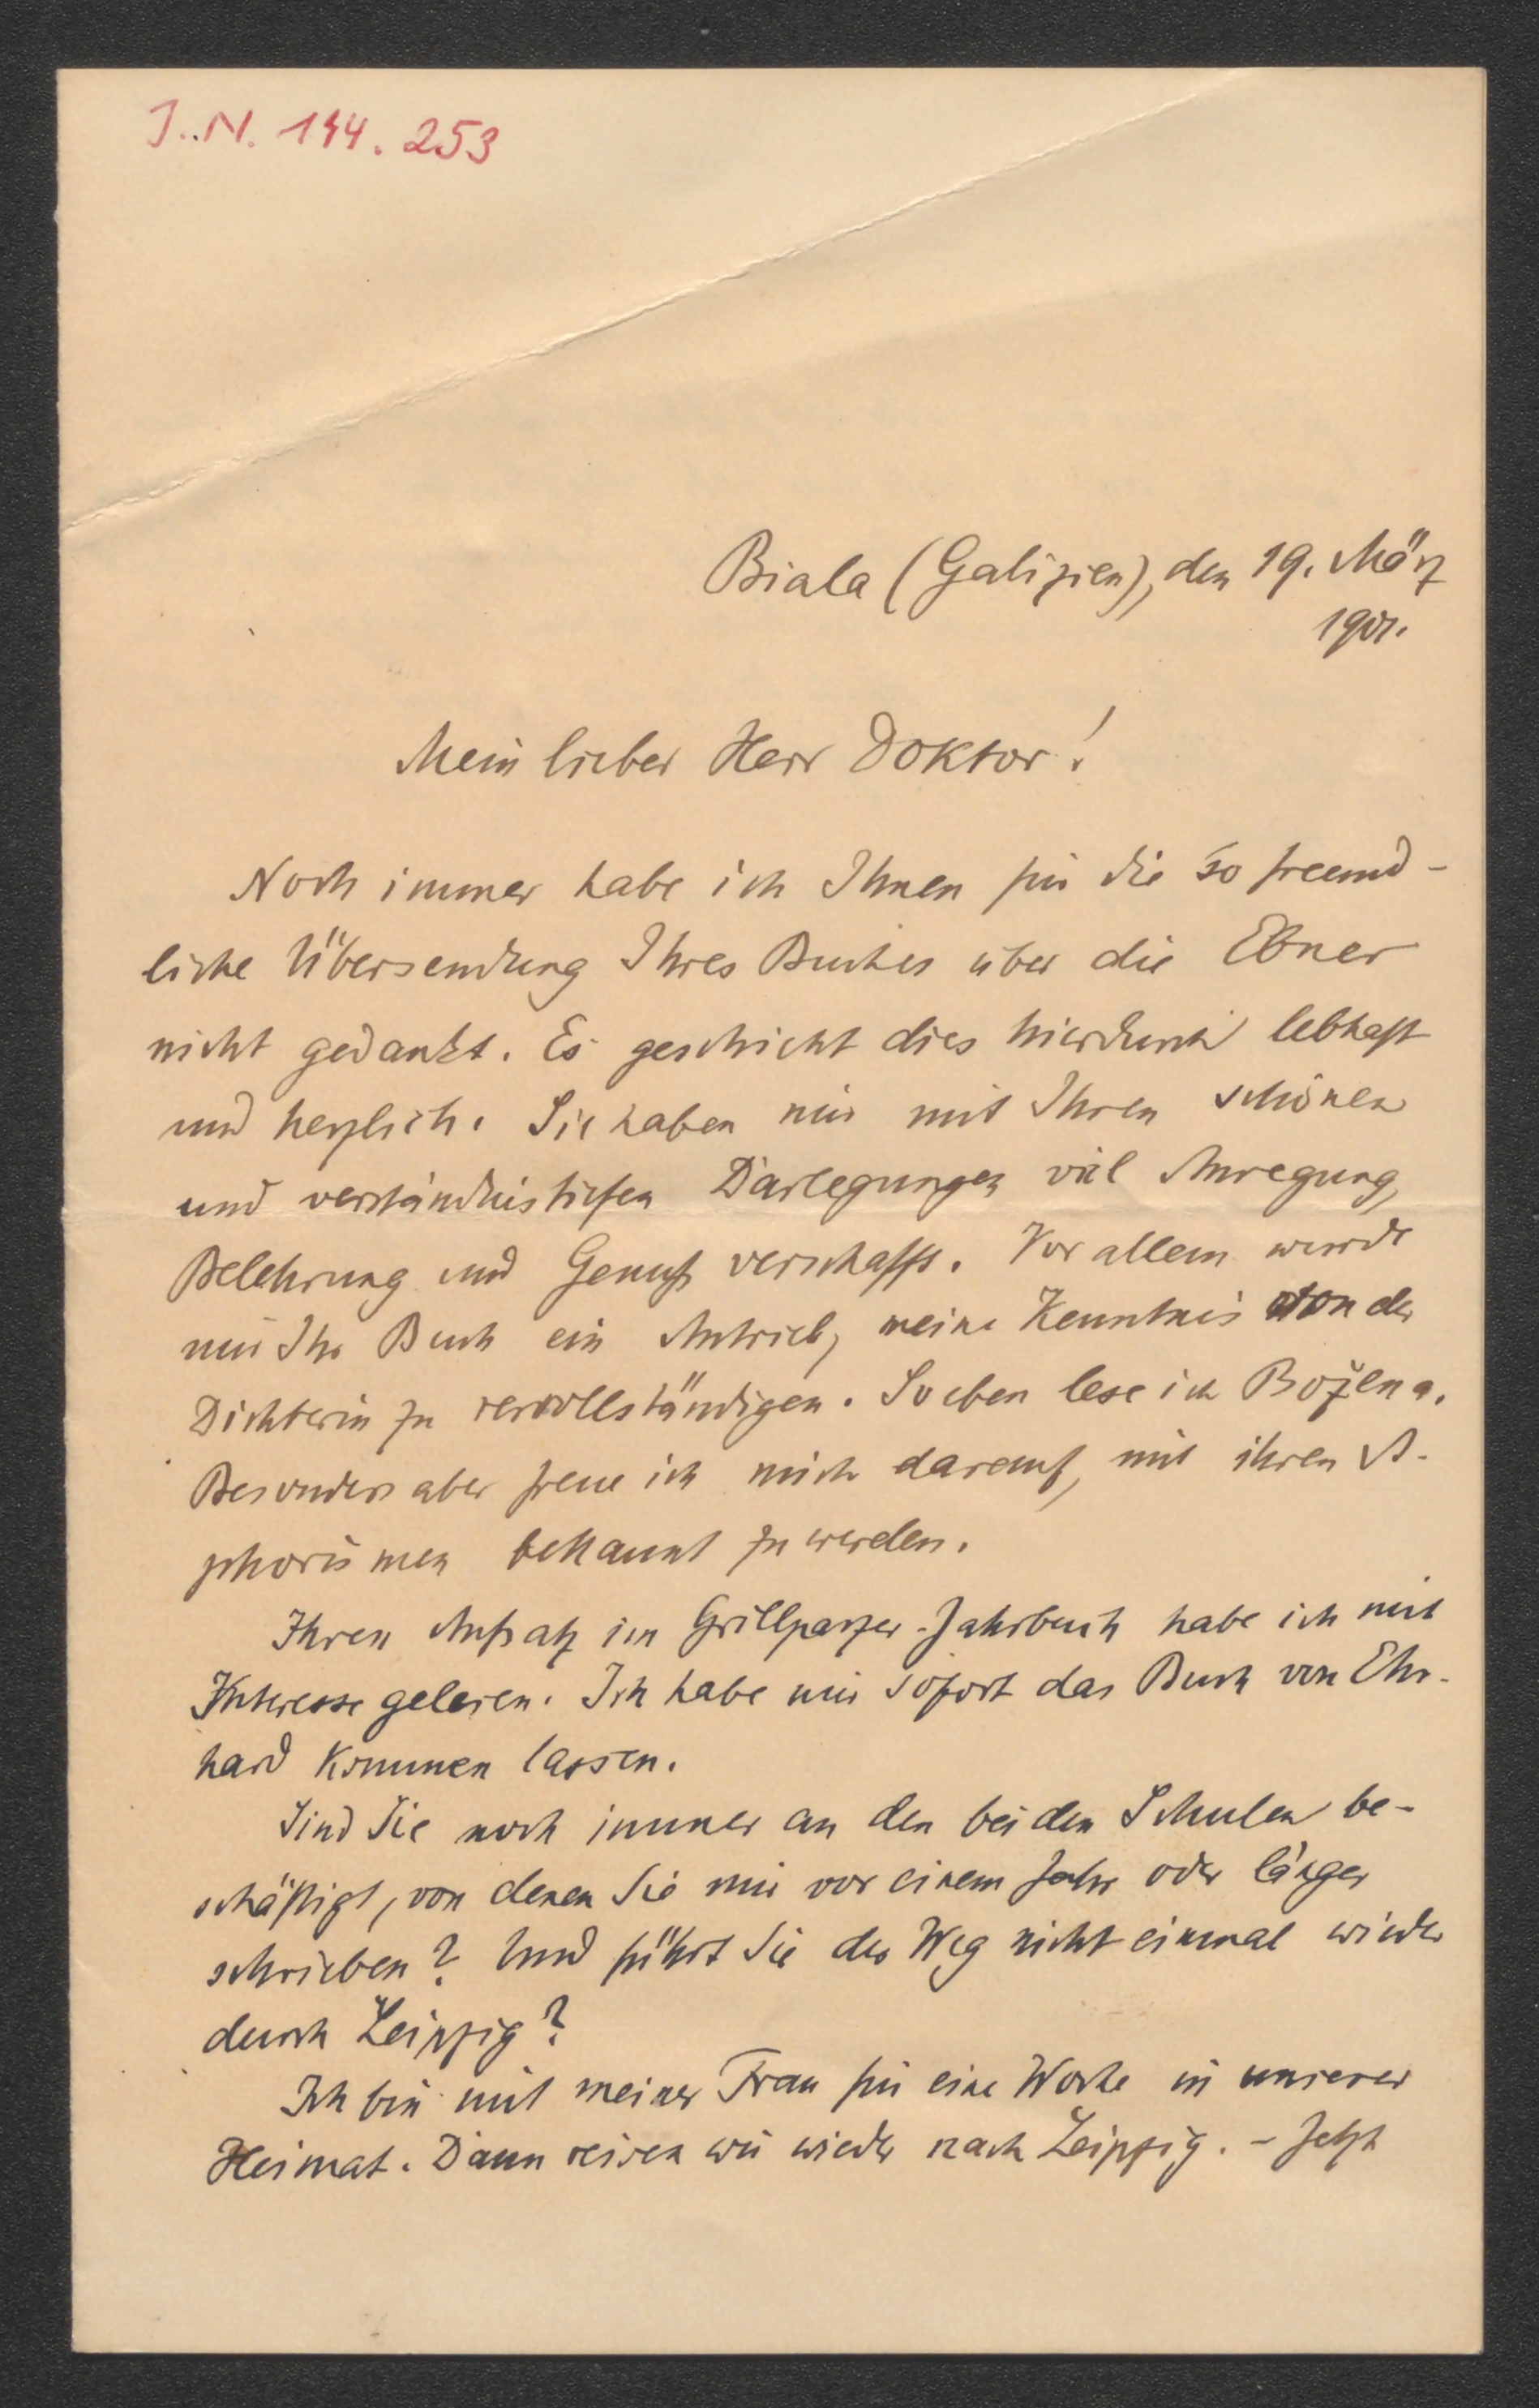 J.N. 144.253
Biala (Galizien), den 19. März
1901.
Mein lieber Herr Doktor!
Noch immer habe ich Ihnen für die so freund-
liche Übersendung Ihres Buches über die Ebner
nicht gedankt. Es geschieht dies hierdurch lebhaft
und herzlich. Sie haben mir mit Ihren schönen
und verständnistiefen Darlegungen viel Anregung,
Belehrung und Genuß verschafft. Vor allem wurde
mir Ihr Buch ein Antrieb, meine Kenntnis von der
Dichterin zu vervollständigen. Soeben lese ich Božena.
Besonders aber freue ich mich darauf, mit ihren A-
phorismen bekannt zu werden.
Ihren Aufsatz im Grillparzer-Jahrbuch habe ich mit
Interesse gelesen. Ich habe mir sofort das Buch von Ehr-
hard kommen lassen.
Sind Sie noch immer an den beiden Schulen be-
schäftigt, von denen Sie mir vor einem Jahr oder länger
schrieben? Und führt Sie der Weg nicht einmal wieder
durch Leipzig?
Ich bin mit meiner Frau für eine Woche in unserer
Heimat. Dann reisen wir wieder nach Leipzig. – Jetzt